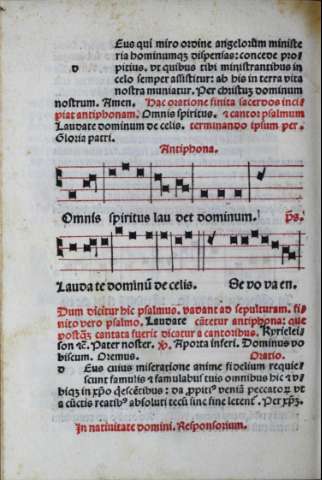 Eus qui miro ordine angeloꝝ ministe
ria hominumqꝫ dispensas: concede pro⸗
d pitius. vt quibus tibi ministrantibus in
celo semper assistitur: ab his in terra vita
nostra muniatur. Per christuꝫ dominum
nostrum. Amen. Hac oratione finita sacerdos inci⸗
piat antiphonam. Omnis spiritus. ⁊ cantor psalmum
Laudate dominum de celis. terminando ipsum per.
Gloria patri.
Antiphona.
Omnis spiritus lau det dominum. p̄s.
Lauda te dominū de celis. Se vo va en.
Dum dicitur hic psalmus. vadant ad sepulturam. fi⸗
nito vero psalmo. Laudate cātetur antiphona: que
postqꝫ cantata fuerit dicatur a cantoribus. Kyrielei⸗
son ⁊c̄. Pater noster. ℣. A porta inferi. Dominus vo
biscum. Oremus. Oratio.
d Eus cuius miseratione anime fidelium requie⸗
scunt famulis ⁊ famulabus tuis omnibus hic ⁊ v⸗
biqꝫ in xp̄o q̄escētibus: da ꝓpitiꝰ veniā peccatoꝝ vt
a cūctis reatibꝰ absoluti tecū sine fine letent᷑. Per xp̄ꝫ.
In natiuitate domini. Responsorium.